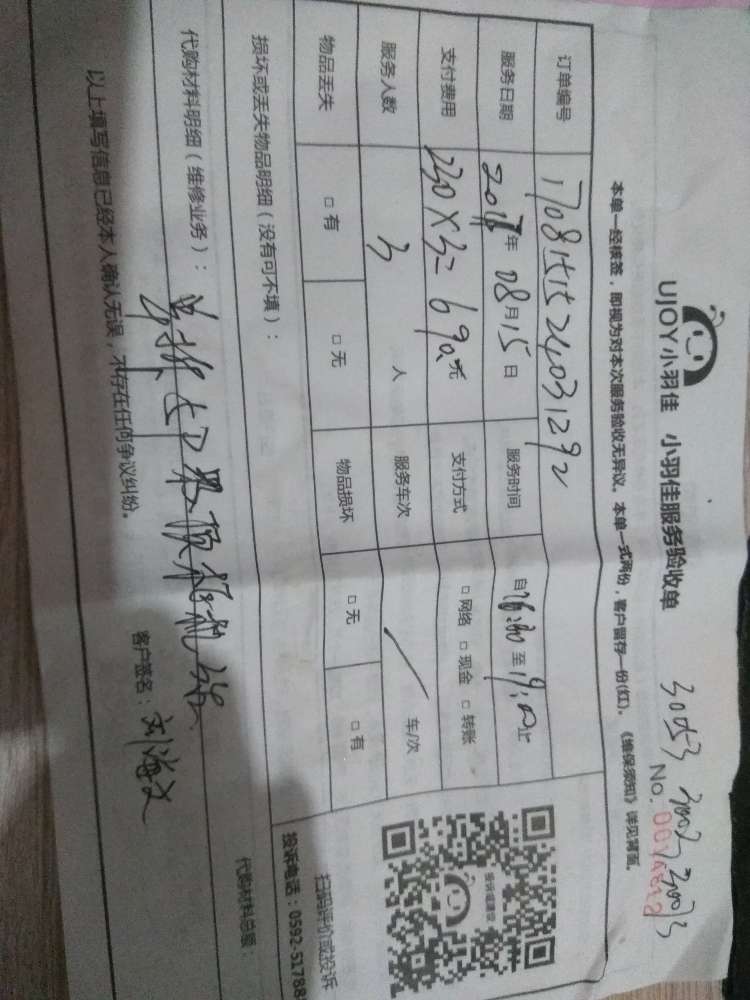 UJOY小羽佳 小羽佳服务验收单
30053 30023 30073
No.
本单一经核签，即视为对本次服务验收无异议。本单一式两份，客户留存一份(红)。《维保须知》详见背面。
订单编号 1708151524031292
服务日期 2017年08月15日 服务时间 自18:30至19:00止
支付费用 230×3=690元 支付方式 □网络 □现金 □转账
服务人数 3 人 服务车次 / 车/次
物品丢失 □有 □无 物品损坏 □无 □有
损坏或丢失物品明细（没有可不填）：
代购材料明细（维修业务）：
代购材料总额：
以上填写信息已经本人确认无误，不存在任何争议纠纷。
客户签名：刘海文
扫码评价或投诉
投诉电话：0592-51788